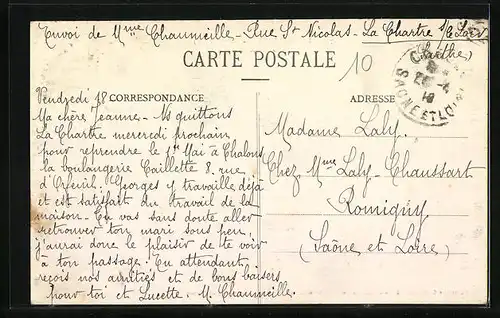 Envoi de Mme Chaumeille - Rue St Nicolas - La Chartre s/ Loir
(Sarthe)
CARTE POSTALE
10
CORRESPONDANCE
ADRESSE
Vendredi 18
Ma chère Jeanne - Ns quittons
La Chartre mercredi prochain
pour reprendre le 1er Mai à Chalons
la boulangerie Caillette 8. rue
d'Orfeuil. Georges y travaille déjà
et est satisfait du travail de la
maison. Tu vas sans doute aller
retrouver ton mari sous peu,
j'aurai donc le plaisir de te voir
à ton passage. En attendant,
reçois nos amitiés et de bons baisers
pour toi et Lucette. M. Chaumeille.
Madame Laly.
Chez Mme Laly-Chaussart
Romigny
(Saône et Loire)
SAONE ET LOIRE